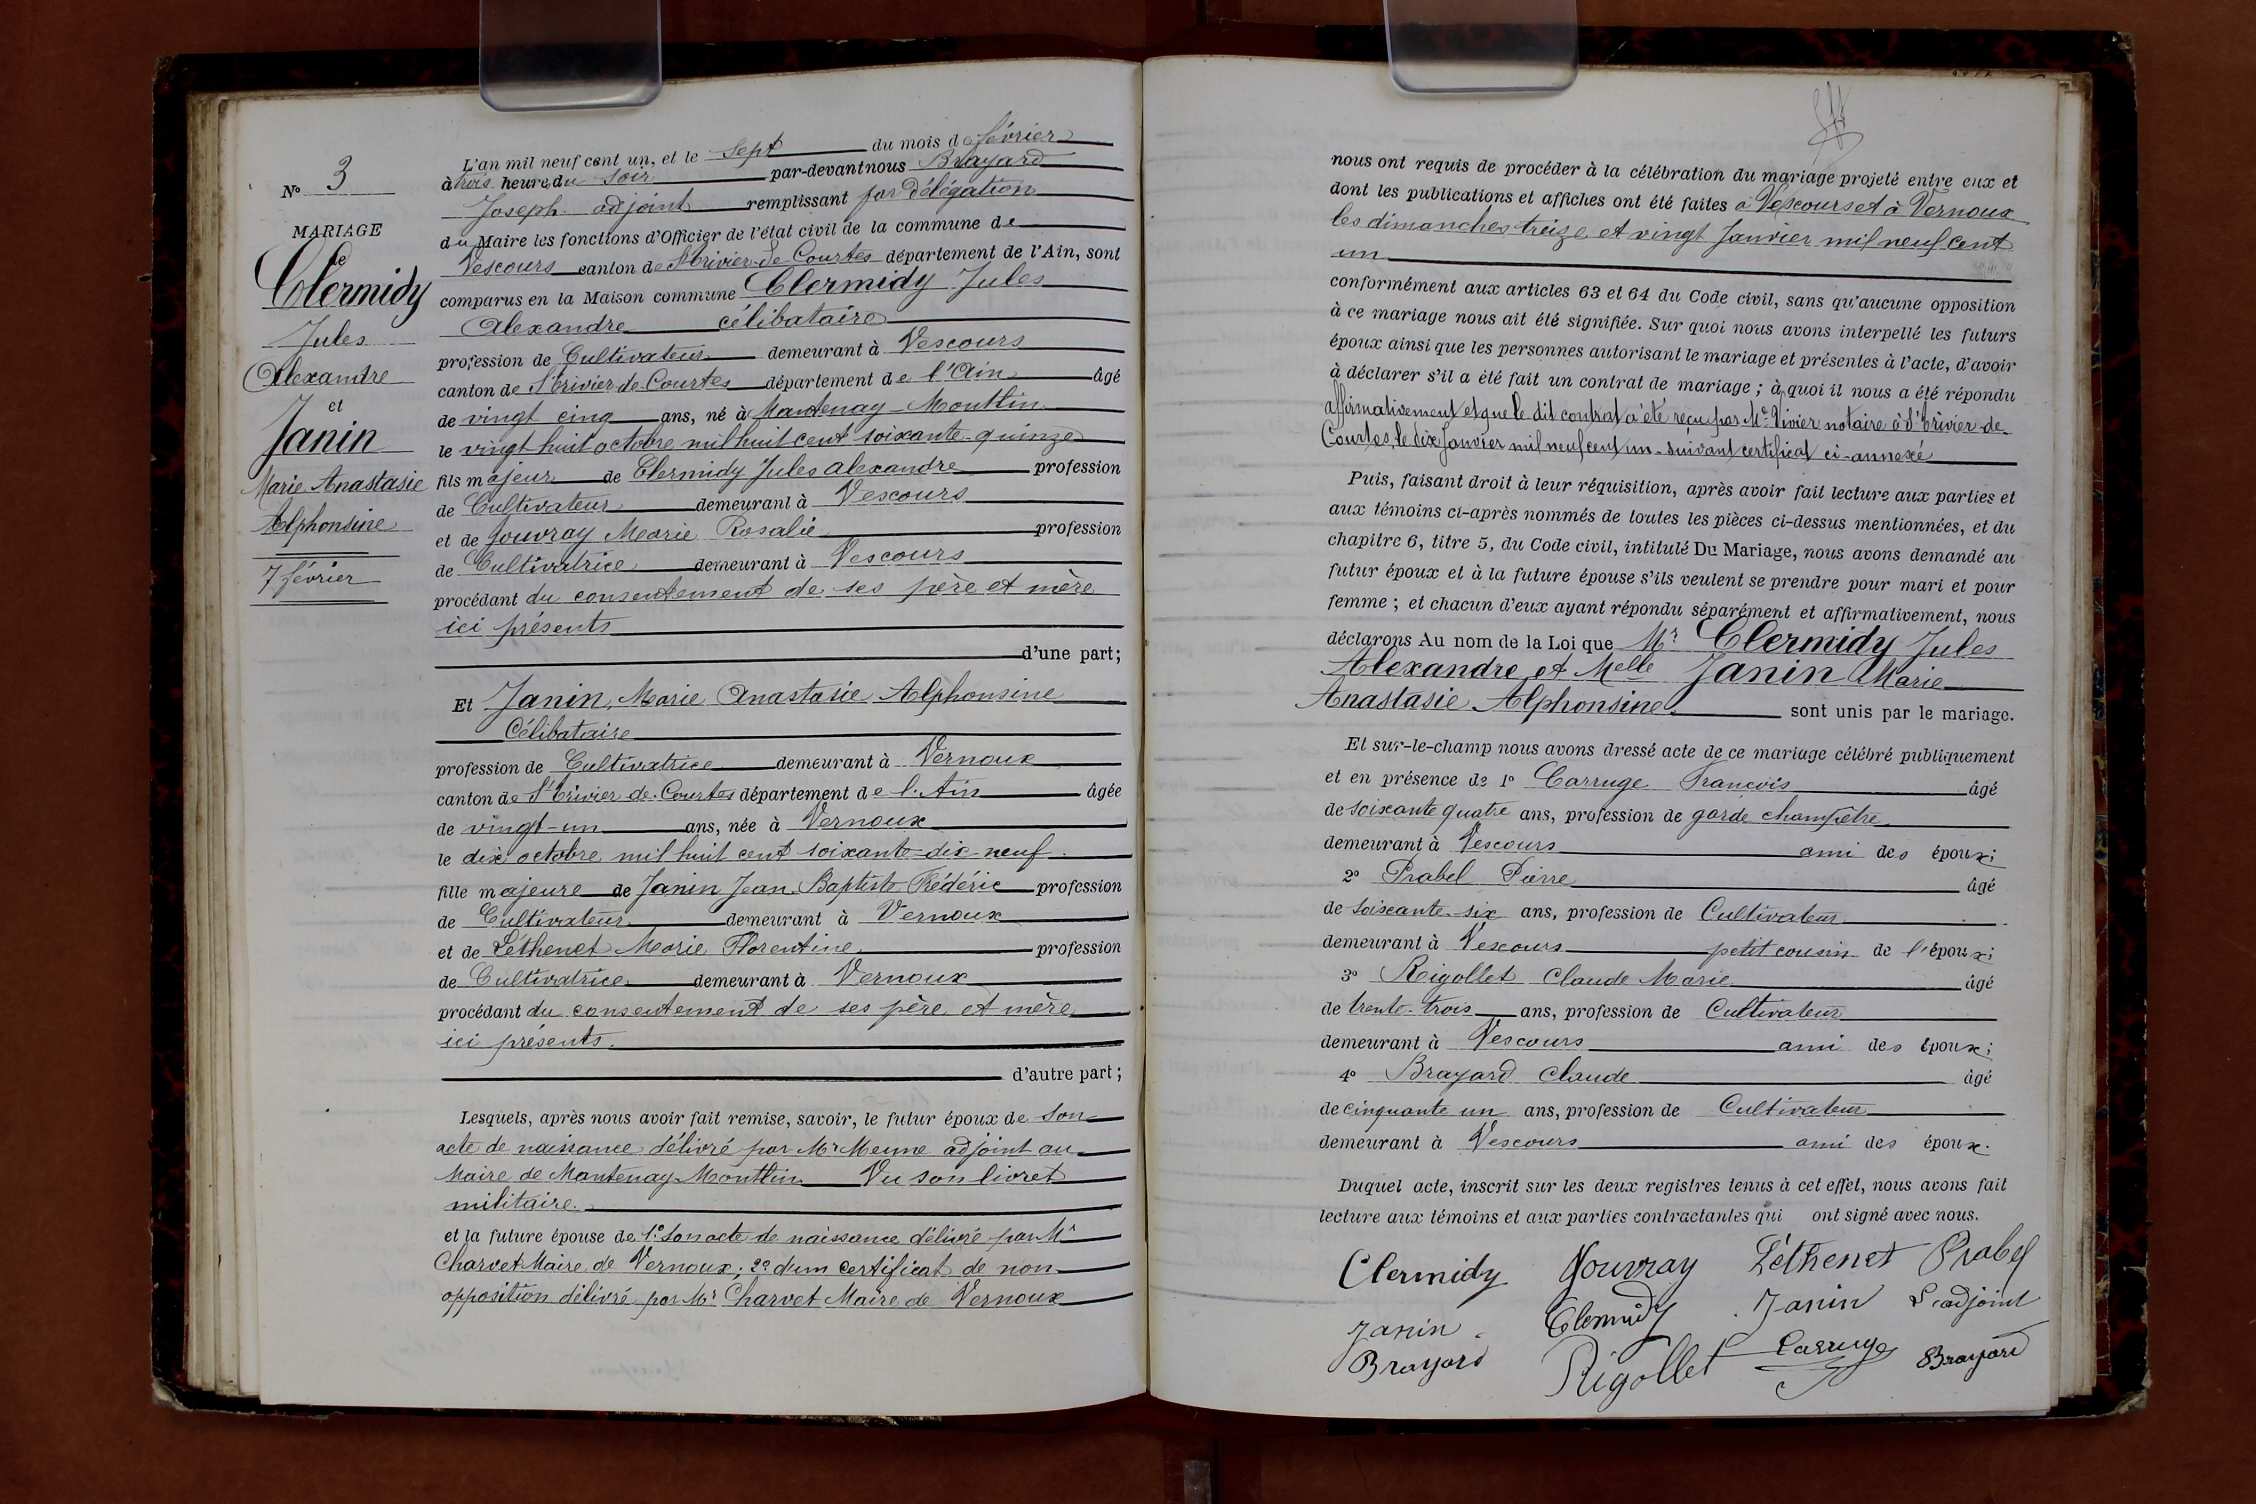 N° 3
MARIAGE
de
Clermidy
Jules
Alexandre
et
Janin
Marie Anastasie
Alphonsine
7 février
L'an mil neuf cent un, et le sept du mois de février
à trois heures du soir par-devant nous Brayard
Joseph adjoint remplissant par délégation
du Maire les fonctions d'Officier de l'état civil de la commune de
Vescours canton de St Trivier-de-Courtes département de l'Ain, sont
comparus en la Maison commune Clermidy Jules
Alexandre célibataire
profession de Cultivateur demeurant à Vescours
canton de St Trivier de Courtes département de l'Ain âgé
de vingt cinq ans, né à Mantenay-Montlin
le vingt huit octobre mil huit cent soixante-quinze
fils majeur de Clermidy Jules Alexandre profession
de Cultivateur demeurant à Vescours
et de Gouvray Marie Rosalie profession
de Cultivatrice demeurant à Vescours
procédant du consentement de ses père et mère
ici présents
d'une part;
Et Janin, Marie Anastasie Alphonsine
Célibataire
profession de Cultivatrice demeurant à Vernoux
canton de St Trivier de Courtes département de l'Ain âgée
de vingt-un ans, née à Vernoux
le dix octobre mil huit cent soixante-dix-neuf
fille majeure de Janin Jean Baptiste Frédéric profession
de Cultivateur demeurant à Vernoux
et de Léthenet Marie Florentine profession
de Cultivatrice demeurant à Vernoux
procédant du consentement de ses père et mère
ici présents.
d'autre part;
Lesquels, après nous avoir fait remise, savoir, le futur époux de son
acte de naissance délivré par Mr adjoint au
Maire de Mantenay-Montlin Vu son livret
militaire.
et la future épouse de 1° son acte de naissance délivré par Mr
Charvet Maire de Vernoux; 2° d'un certificat de non
opposition délivré par Mr Charvet Maire de Vernoux
nous ont requis de procéder à la célébration du mariage projeté entre eux et
dont les publications et affiches ont été faites à Vescours et à Vernoux
les dimanches treize et vingt Janvier mil neuf cent
un
conformément aux articles 63 et 64 du Code civil, sans qu'aucune opposition
à ce mariage nous ait été signifiée. Sur quoi nous avons interpellé les futurs
époux ainsi que les personnes autorisant le mariage et présentes à l'acte, d'avoir
à déclarer s'il a été fait un contrat de mariage ; à quoi il nous a été répondu
affirmativement et que le dit contrat a été reçu par Me Vivier notaire à St Trivier-de-
Courtes, le dix Janvier mil neuf cent un - suivant certificat ci-annexé
Puis, faisant droit à leur réquisition, après avoir fait lecture aux parties et
aux témoins ci-après nommés de toutes les pièces ci-dessus mentionnées, et du
chapitre 6, titre 5, du Code civil, intitulé Du Mariage, nous avons demandé au
futur époux et à la future épouse s'ils veulent se prendre pour mari et pour
femme ; et chacun d'eux ayant répondu séparément et affirmativement, nous
déclarons Au nom de la Loi que Mr Clermidy Jules
Alexandre et Melle Janin Marie
Anastasie Alphonsine sont unis par le mariage.
Et sur-le-champ nous avons dressé acte de ce mariage célébré publiquement
et en présence de 1° Carruge François âgé
de soixante quatre ans, profession de garde champêtre
demeurant à Vescours ami des époux;
2° Prabel Pierre âgé
de soixante-six ans, profession de Cultivateur
demeurant à Vescours petit cousin de l'époux;
3° Rigollet Claude Marie âgé
de trente-trois ans, profession de Cultivateur
demeurant à Vescours ami des époux;
4° Brayard Claude âgé
de cinquante un ans, profession de Cultivateur
demeurant à Vescours ami des époux.
Duquel acte, inscrit sur les deux registres tenus à cet effet, nous avons fait
lecture aux témoins et aux parties contractantes qui ont signé avec nous.
Clermidy Gouvray Léthenet Prabel
Janin Clermidy Janin L'adjoint
Brayard Rigollet Carruge Brayard